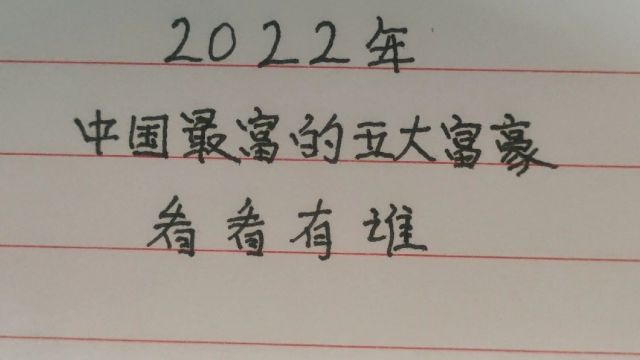 2022年
中国最富的五大富豪
看看有谁